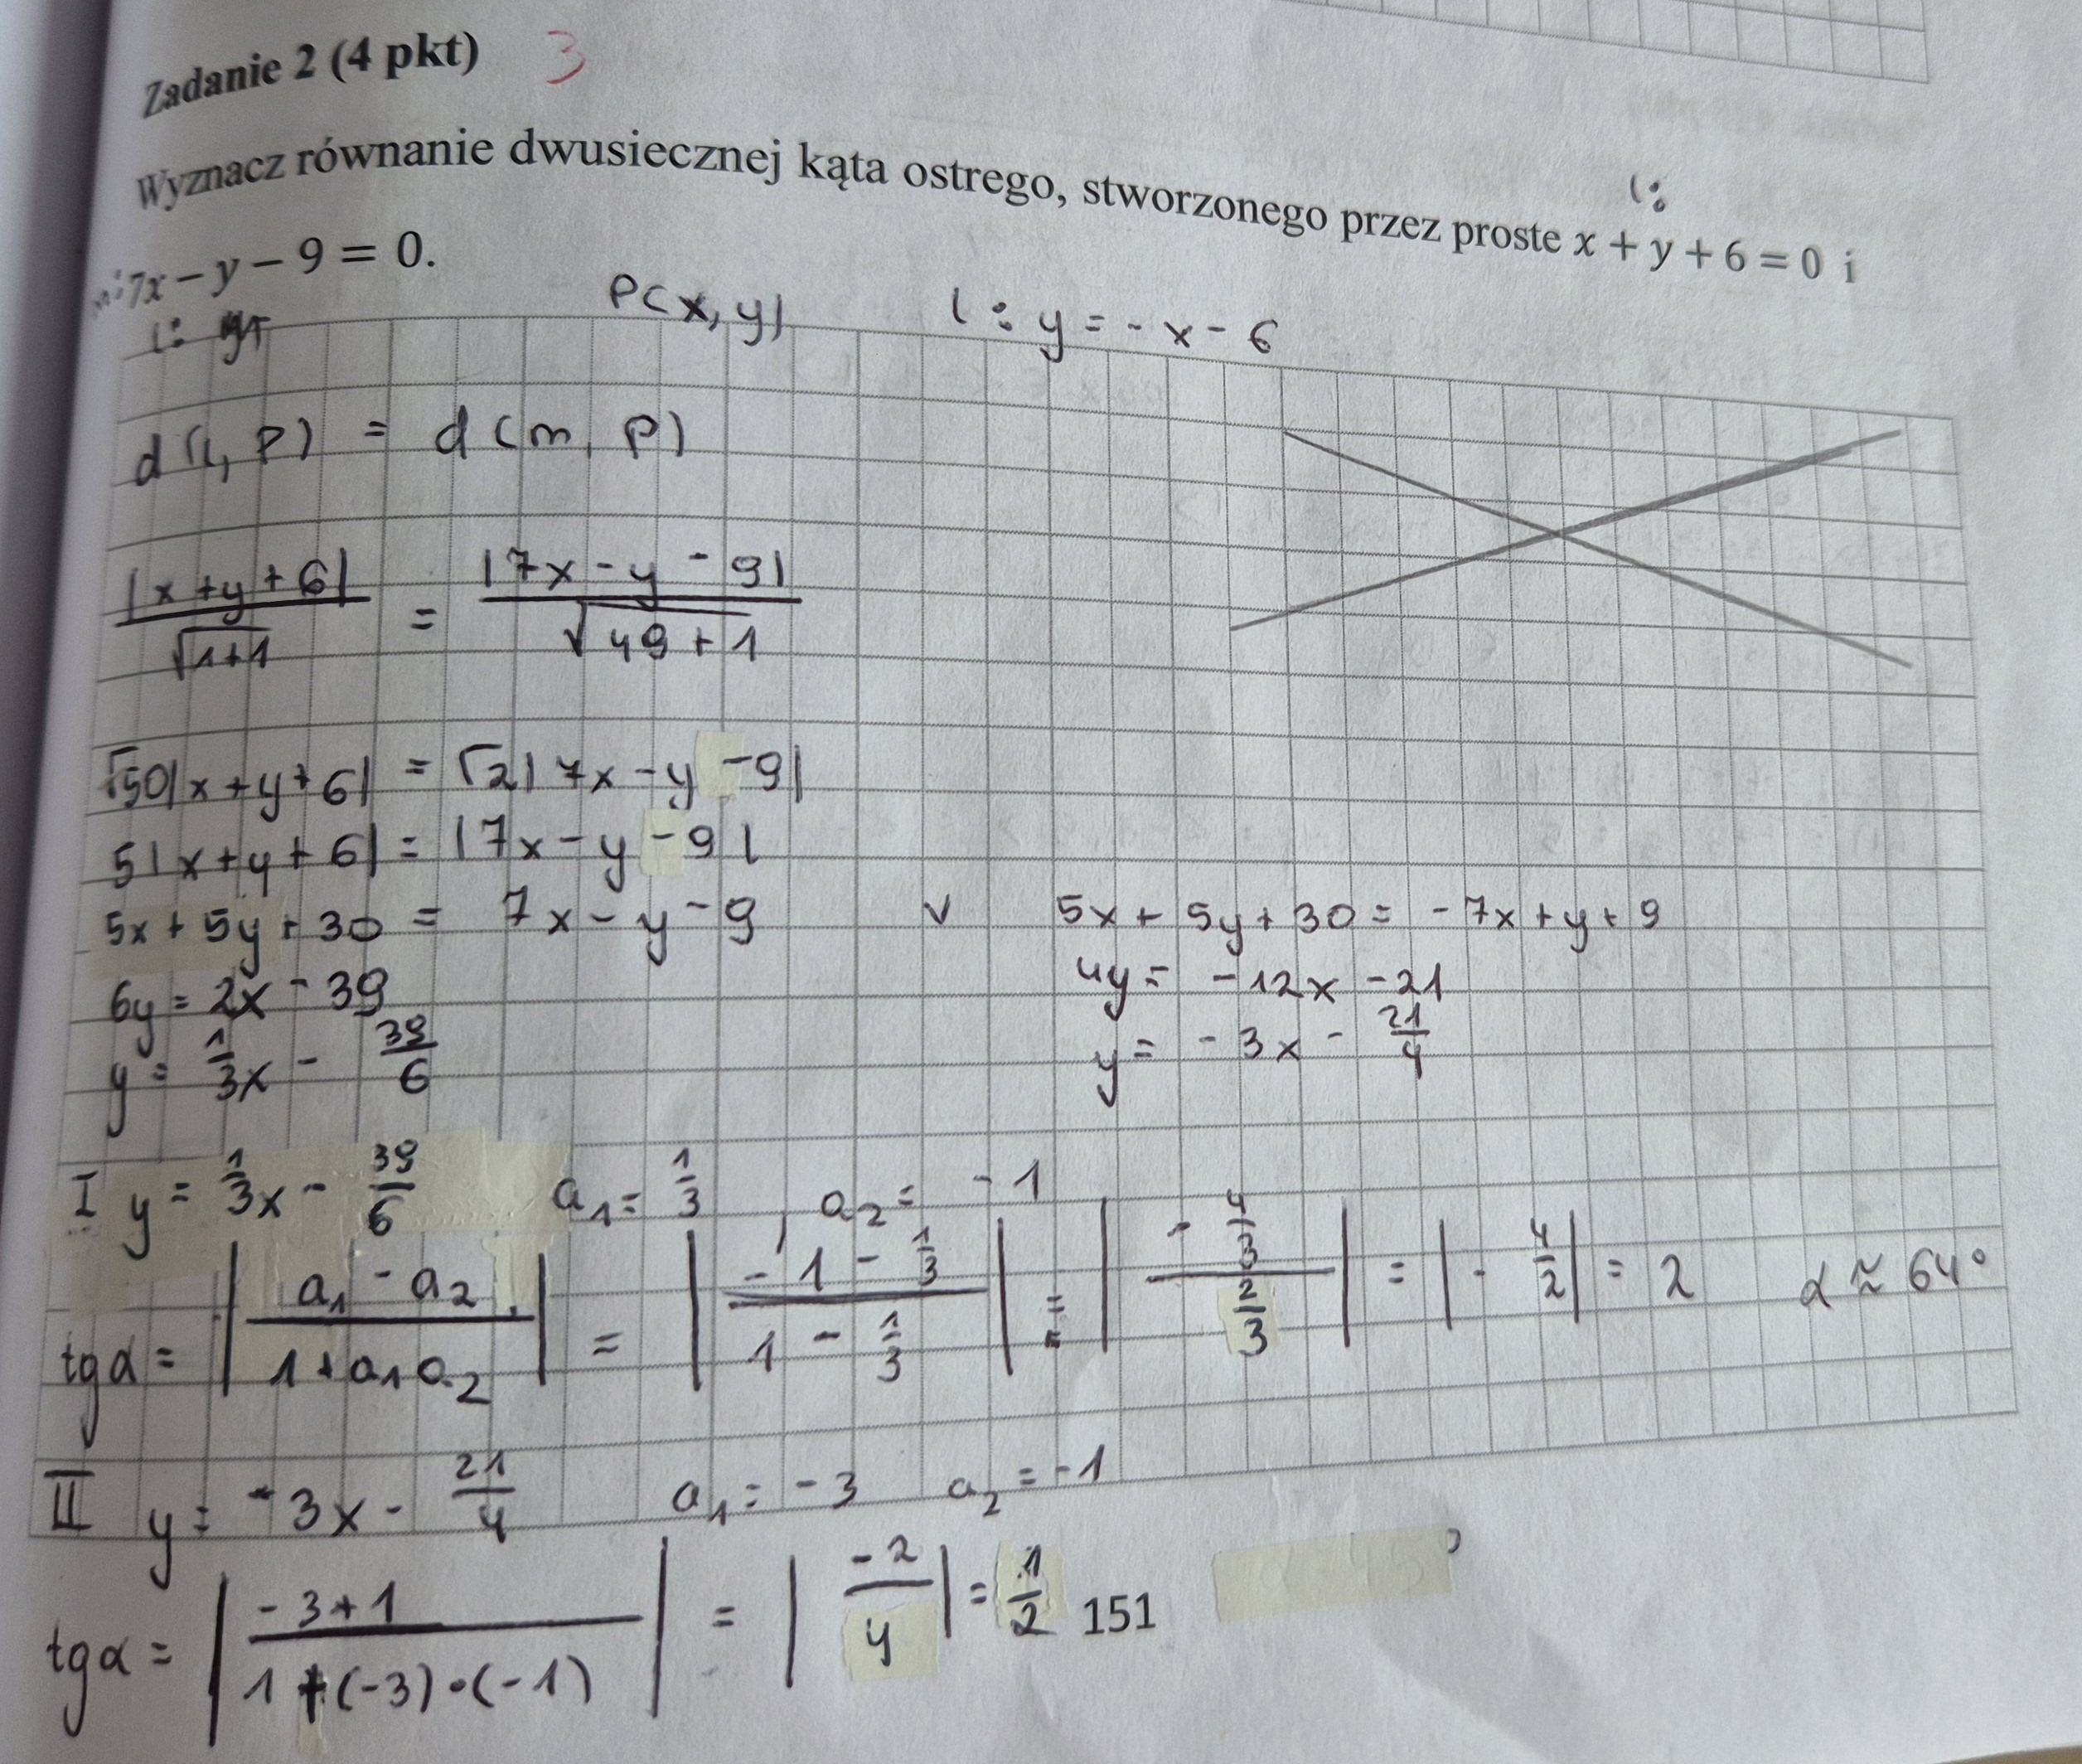 Zadanie 2 (4 pkt) 3
Wyznacz równanie dwusiecznej kąta ostrego, stworzonego przez proste x + y + 6 = 0 i
l:
m: 7x − y − 9 = 0.
P(x, y) l: y = -x - 6
l:
d(l, P) = d(m, P)
|x+y+6| / √(1+1) = |7x-y-9| / √(49+1)
√50|x+y+6| = √2|7x-y-9|
5|x+y+6| = |7x-y-9|
5x+5y+30 = 7x-y-9 v 5x+5y+30 = -7x+y+9
6y = 2x-39 4y = -12x-21
y = 1/3 x - 39/6 y = -3x - 21/4
I y = 1/3 x - 39/6 a₁ = 1/3, a₂ = -1
tgα = |(a₁-a₂)/(1+a₁a₂)| = |(-1-1/3)/(1-1/3)| = |(-4/3)/(2/3)| = |-4/2| = 2 α ≈ 64°
II y = -3x - 21/4 a₁ = -3 a₂ = -1
tgα = |(-3+1)/(1+(-3)·(-1))| = |-2/4| = 1/2
151